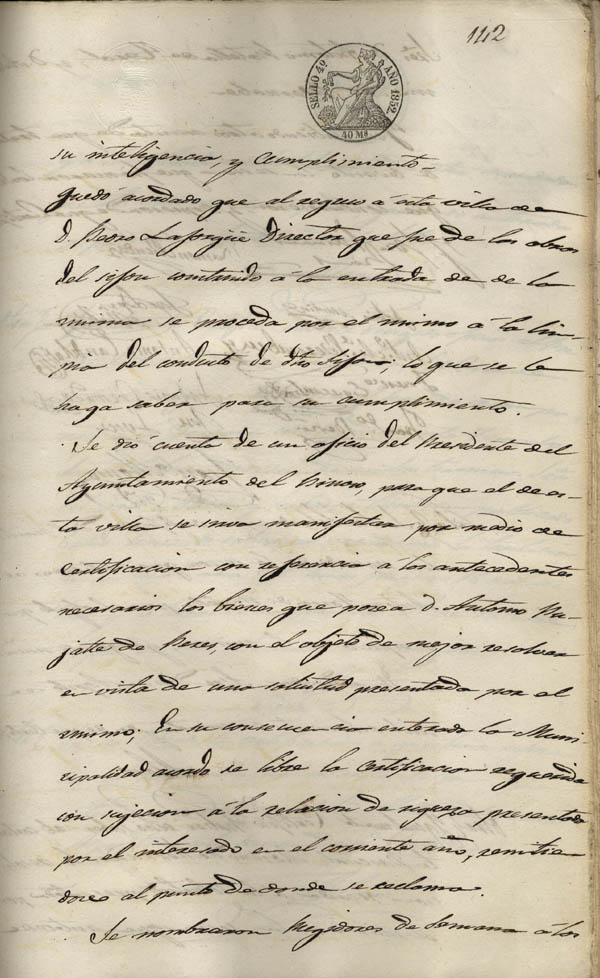 142
SELLO 4º AÑO 1852
40 Ms
su inteligencia, y cumplimiento.
Quedó acordado que al regreso á esta villa de
D. Pedro Laforgüe Director que fue de las obras
del sifon construido á la entrada de de la
mina se proceda por el mismo á la lim-
pia del conducto de dho sifon; lo que se le
haga saber para su cumplimiento.
Se dió cuenta de un oficio del Presidente del
Ayuntamiento del Pinoso, para que el de es-
ta villa se sirva manifestar por medio de
certificacion con referencia á los antecedentes
necesarios los bienes que posea D. Antonio
de Perez, con el objeto de mejor resolver
en vista de una solicitud presentada por el
mismo; En su consecuencia enterado la Muni-
cipalidad acordó se libre la certificacion requerida
con sujecion á la relacion de riqueza presentada
por el interesado en el corriente año, remitien
dose al punto de donde se reclama.
Se nombraron Regidores de Semana á los